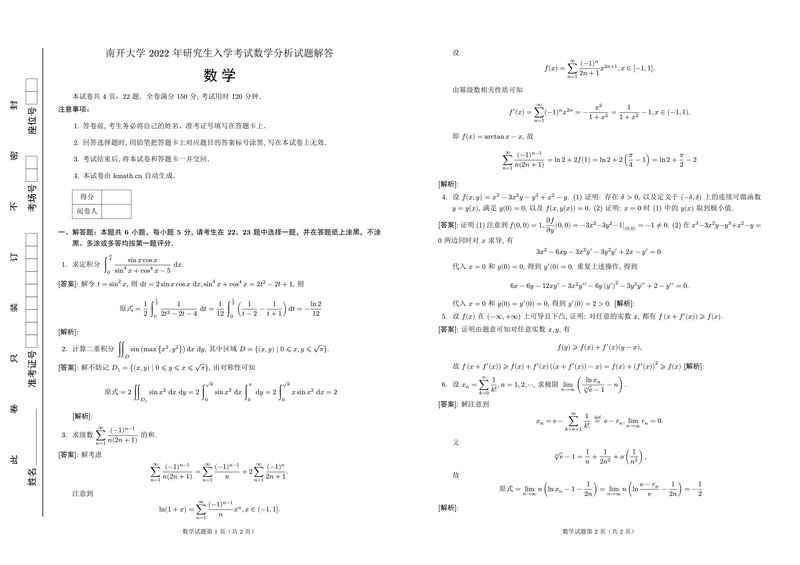 封
密
不
订
装
只
卷
此
座位号
考场号
准考证号
姓名
南开大学 2022 年研究生入学考试数学分析试题解答
数学
本试卷共 4 页，22 题．全卷满分 150 分, 考试用时 120 分钟。
注意事项：
1. 答卷前, 考生务必将自己的姓名、准考证号填写在答题卡上。
2. 回答选择题时, 用铅笔把答题卡上对应题目的答案标号涂黑, 写在本试卷上无效．
3. 考试结束后, 将本试卷和答题卡一并交回。
4. 本试卷由 kmath.cn 自动生成。
得分
阅卷人
一、解答题：本题共 6 小题，每小题 5 分, 请考生在 22、23 题中选择一题，并在答题纸上涂黑，不涂
黑、多涂或多答均按第一题评分．
1. 求定积分 ∫_0^{π/4} sinxcosx/(sin⁴x+cos⁴x−5) dx.
[答案]: 解令 t=sin²x, 则 dt=2sinxcosx dx, sin⁴x+cos⁴x=2t²−2t+1, 则
原式= 1/2 ∫_0^{1/2} 1/(2t²−2t−4) dt= 1/12 ∫_0^{1/2} (1/(t−2) − 1/(t+1)) dt=− ln2/12
[解析]:
2. 计算二重积分 ∬_D sin(max{x²,y²})dx dy, 其中区域 D={(x,y)|0⩽x,y⩽√π}.
[答案]: 解不妨记 D₁={(x,y)|0⩽y⩽x⩽√π}, 由对称性可知
原式=2∬_{D₁} sinx² dx dy=2∫_0^{√π} sinx² dx∫_0^x dy=2∫_0^{√π} xsinx² dx=2
[解析]:
3. 求级数 ∑_{n=1}^∞ (−1)^{n−1}/(n(2n+1)) 的和.
[答案]: 解考虑
∑_{n=1}^∞ (−1)^{n−1}/(n(2n+1)) = ∑_{n=1}^∞ (−1)^{n−1}/n +2∑_{n=1}^∞ (−1)^n/(2n+1).
注意到
ln(1+x)= ∑_{n=1}^∞ (−1)^{n−1}/n xⁿ, x∈(−1,1].
数学试题第 1 页（共 2 页）
设
f(x)= ∑_{n=1}^∞ (−1)^n/(2n+1) x^{2n+1}, x∈[−1,1].
由幂级数相关性质可知
f′(x)= ∑_{n=1}^∞ (−1)^n x^{2n} =− x²/(1+x²) = 1/(1+x²) −1, x∈(−1,1).
即 f(x)=arctanx−x, 故
∑_{n=1}^∞ (−1)^{n−1}/(n(2n+1)) =ln2+2f(1)=ln2+2(π/4 −1)=ln2+ π/2 −2
[解析]:
4. 设 f(x,y)=x³−3x²y−y³+x²−y. (1) 证明: 存在 δ>0, 以及定义于 (−δ,δ) 上的连续可微函数
y=y(x), 满足 y(0)=0, 以及 f(x,y(x))=0. (2) 证明: x=0 时 (1) 中的 y(x) 取到极小值.
[答案]: 证明 (1) 注意到 f(0,0)=1, ∂f/∂y (0,0)=−3x²−3y²−1|_{(0,0)} =−1≠0. (2) 在 x³−3x²y−y³+x²−y=
0 两边同时对 x 求导, 有
3x²−6xy−3x²y′−3y²y′+2x−y′=0.
代入 x=0 和 y(0)=0, 得到 y′(0)=0. 重复上述操作, 得到
6x−6y−12xy′−3x²y″−6y(y′)²−3y²y″+2−y″=0.
代入 x=0 和 y(0)=y′(0)=0, 得到 y′(0)=2>0. [解析]:
5. 设 f(x) 在 (−∞,+∞) 上可导且下凸, 证明: 对任意的实数 x, 都有 f(x+f′(x))⩾f(x).
[答案]: 证明由题意可知对任意实数 x,y, 有
f(y)⩾f(x)+f′(x)(y−x),
故 f(x+f′(x))⩾f(x)+f′(x)((x+f′(x))−x)=f(x)+(f′(x))²⩾f(x) [解析]:
6. 设 x_n= ∑_{k=0}^n 1/k!, n=1,2,⋯, 求极限 lim_{n→∞} (lnx_n/(ⁿ√e−1) −n).
[答案]: 解注意到
x_n=e− ∑_{k=n+1}^∞ 1/k! ≝ e−r_n, lim_{n→∞} r_n=0.
又
ⁿ√e−1= 1/n + 1/(2n²) +o(1/n²),
故
原式= lim_{n→∞} n(lnx_n−1− 1/(2n)) = lim_{n→∞} n(ln (e−r_n)/e − 1/(2n)) =− 1/2
[解析]:
数学试题第 2 页（共 2 页）